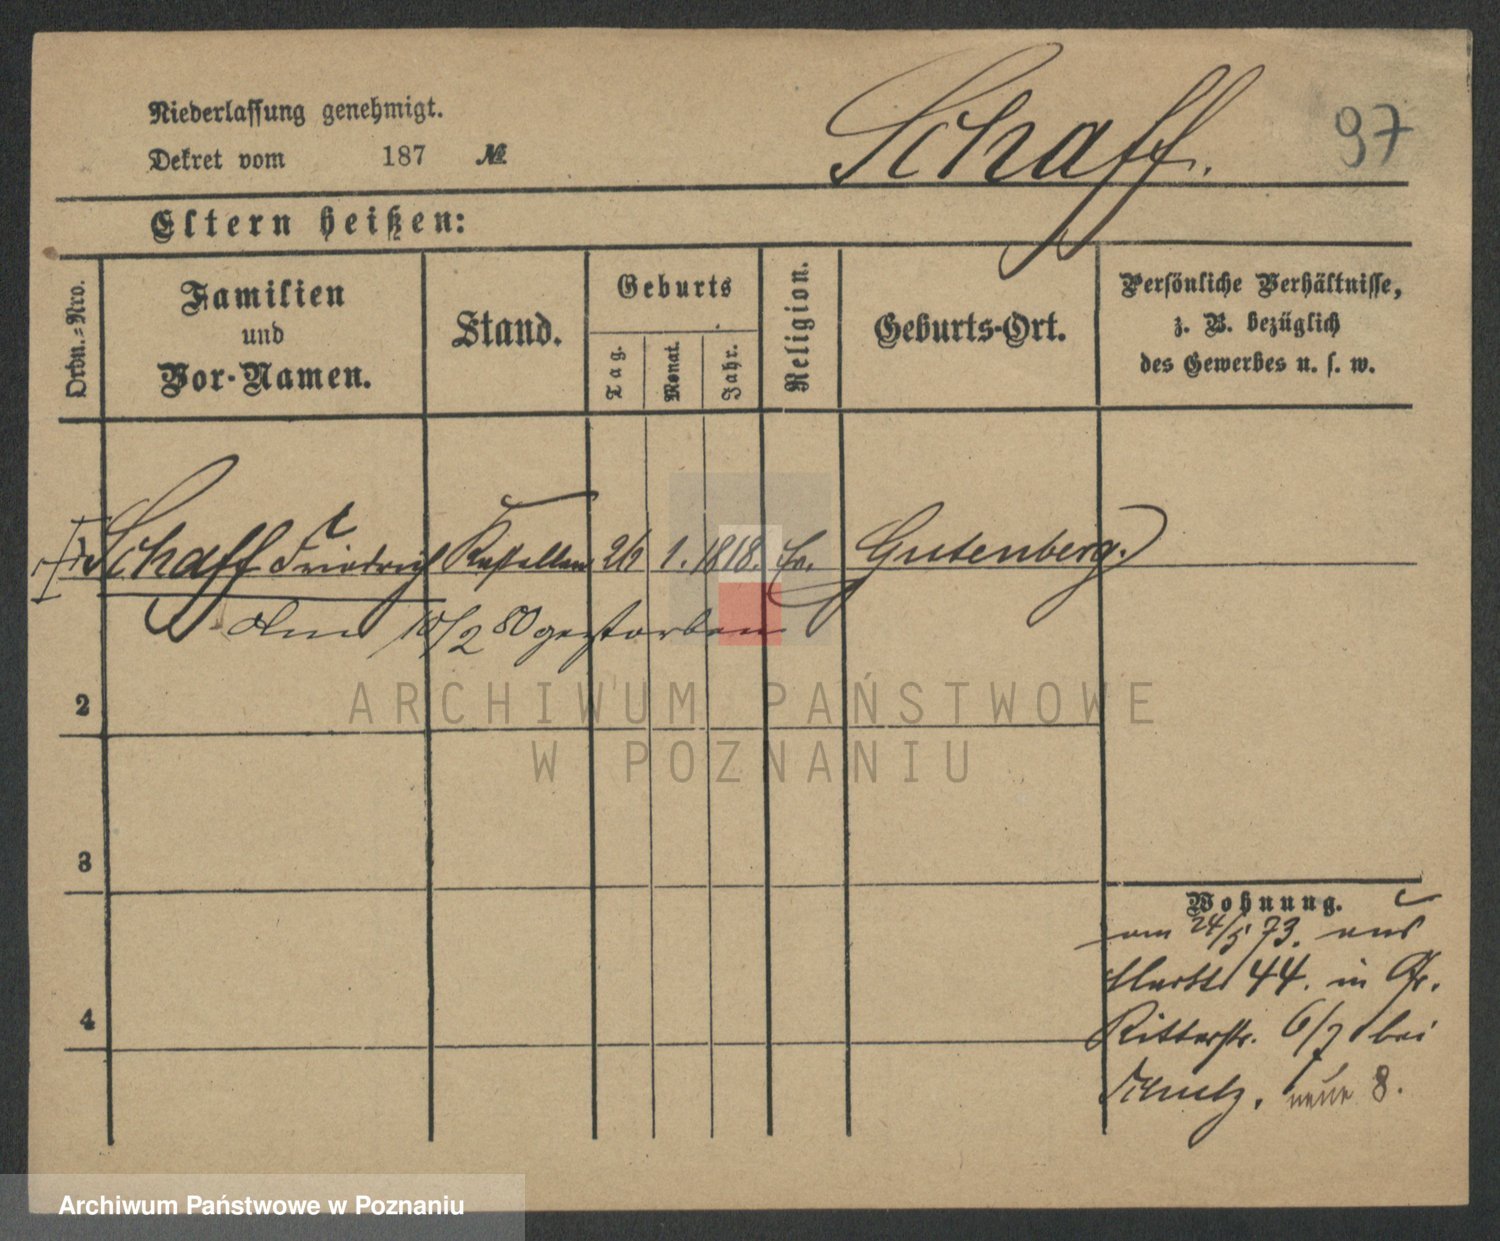 Niederlassung genehmigt.
Dekret vom 187 №
Schaff. 97
Eltern heißen:
Ordn.-Nro.
Familien
und
Vor-Namen.
Stand.
Geburts
Tag.
Monat.
Jahr.
Religion.
Geburts-Ort.
Persönliche Verhältnisse,
z. B. bezüglich
des Gewerbes u. s. w.
1 Schaff Friedrich Kastellan 1. 1818. Ev. Gutenberg.
am 10/2 80 gestorben
2
3
4
Wohnung.
vom 24/5 73. aus
Markt 44. in Gr.
Ritterstr. 6/7 bei
neue 8.
ARCHIWUM PAŃSTWOWE
W POZNANIU
Archiwum Państwowe w Poznaniu